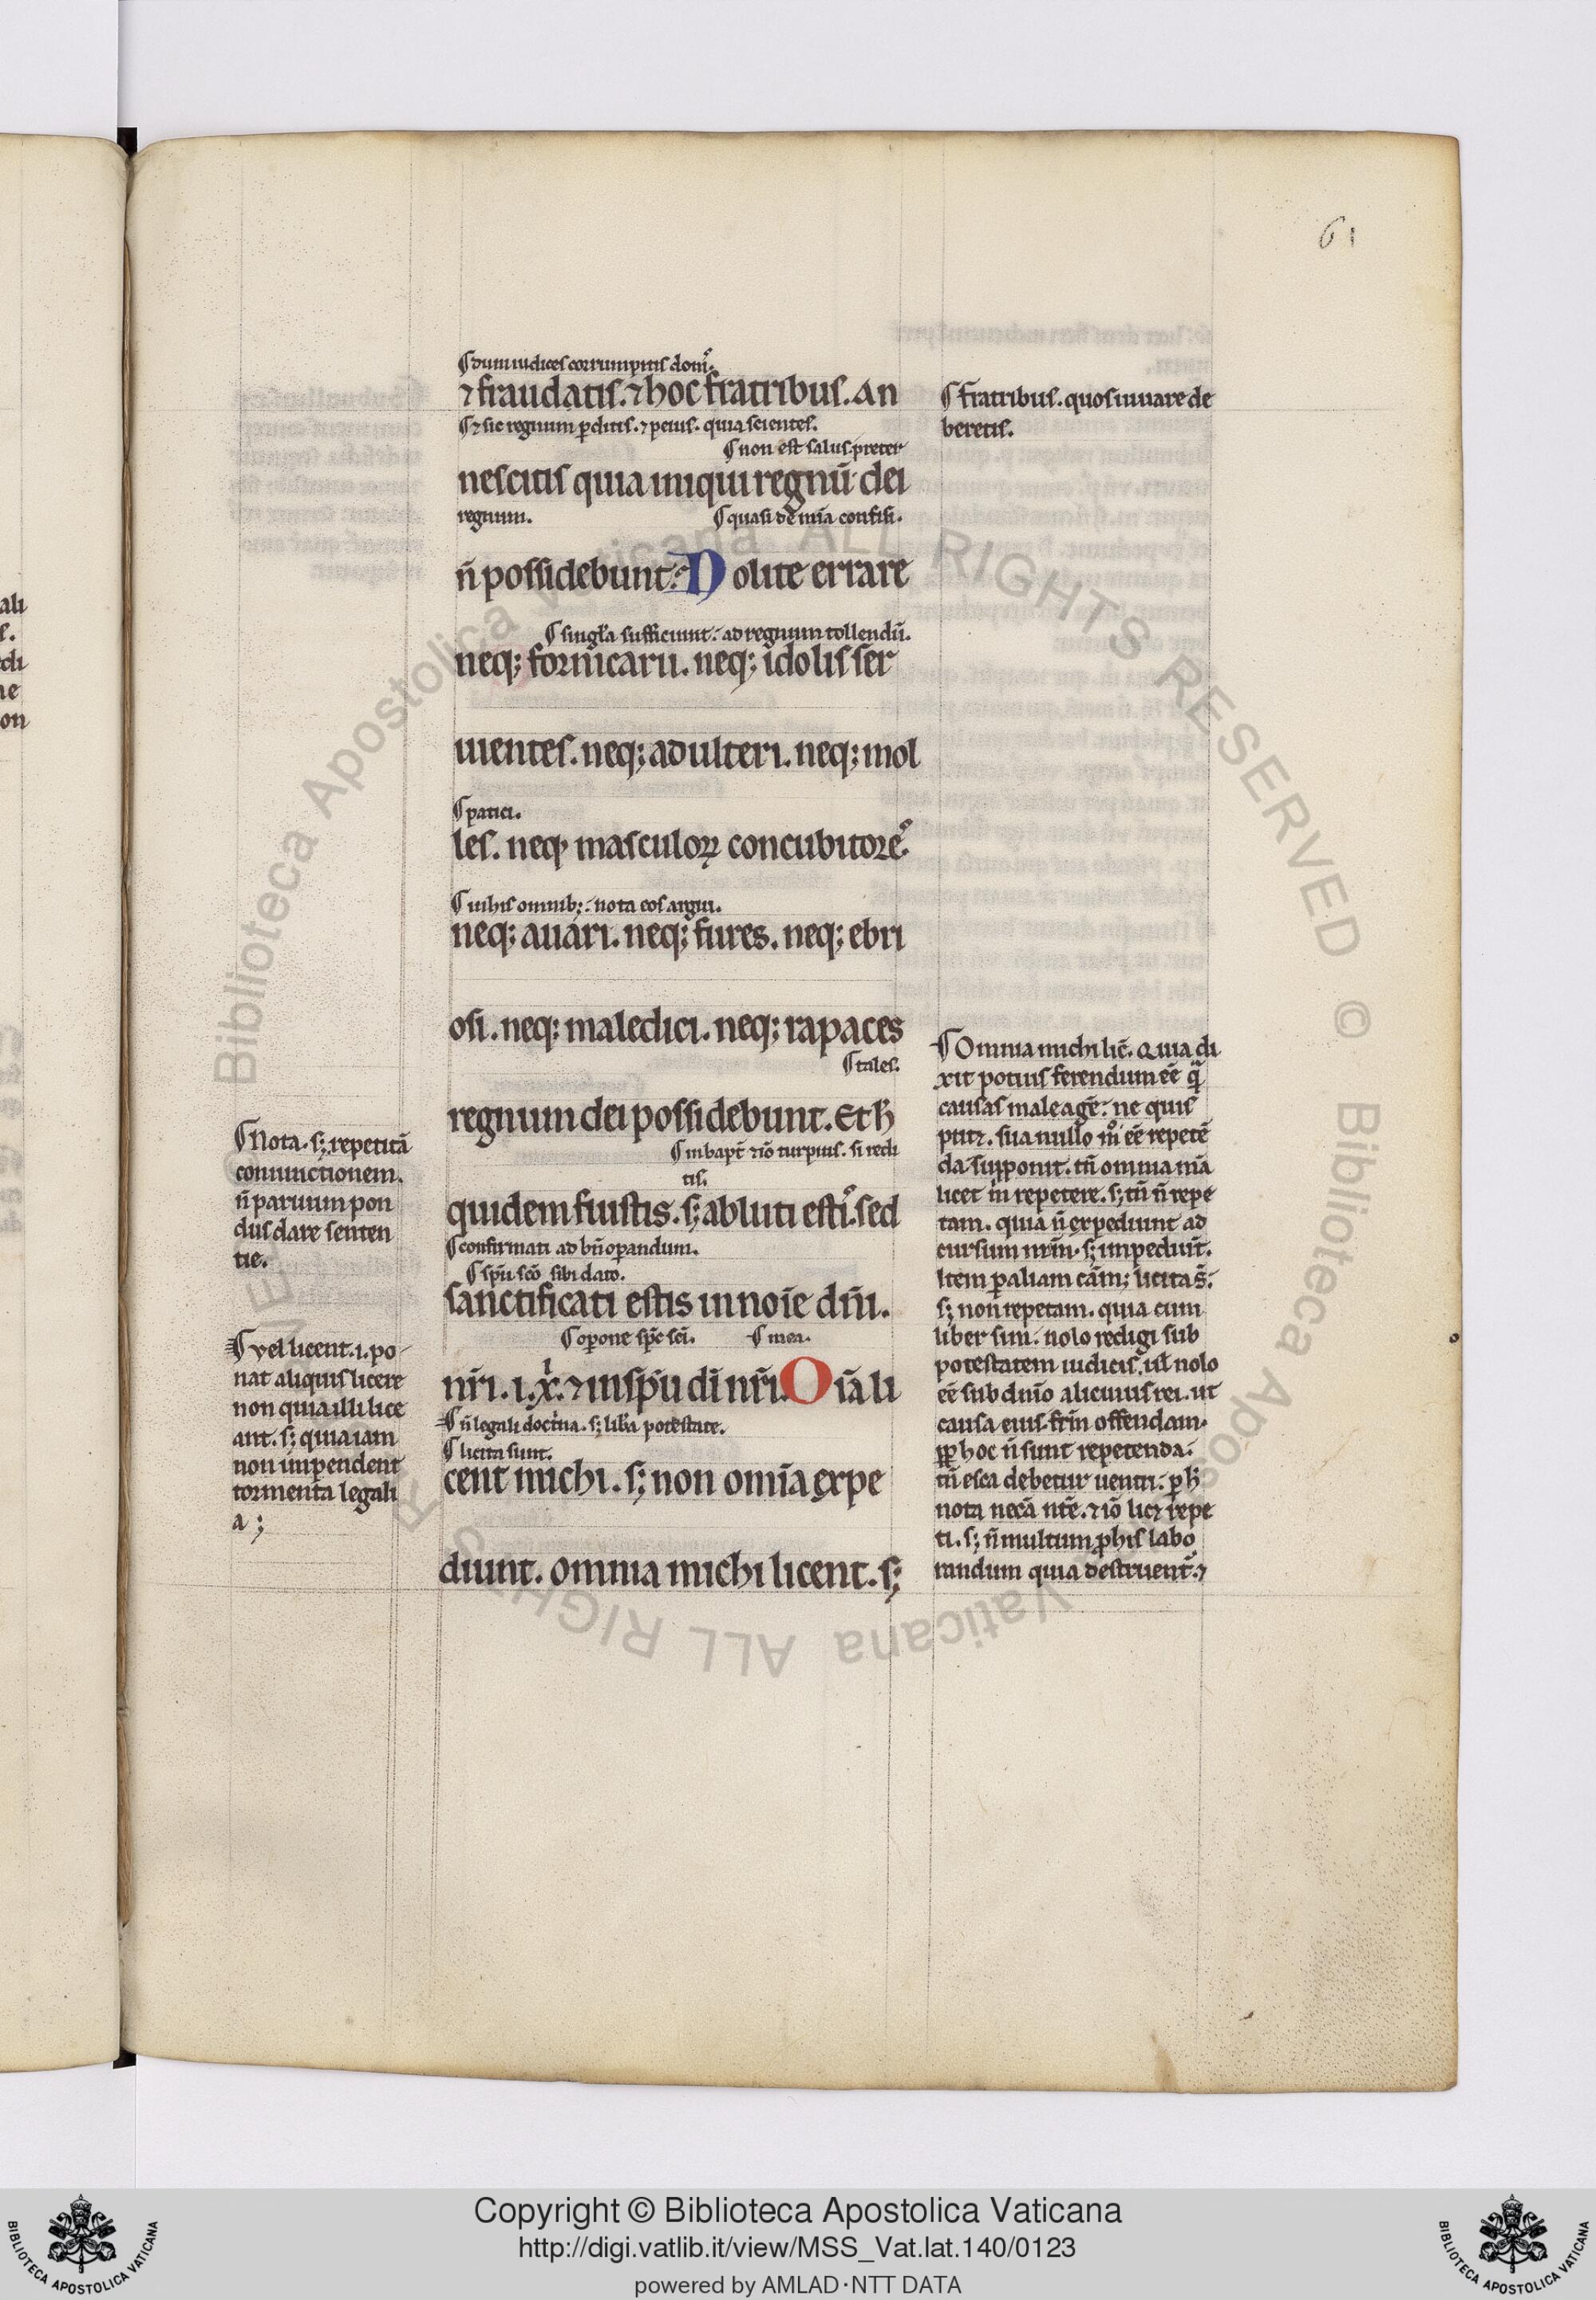 61
¶ dum iudices corrumpitis don᷒.
⁊ fraudatis. ⁊ hoc fratribus. An
¶ ⁊ sic regnum ꝑditis. ⁊ peius. quia scientes.
¶ non est salus preter
nescitis quia iniqui regnū dei
regnum.
¶ quasi de mīa confisi.
n̄ possidebunt. Nolite errare
¶ singl̄a sufficiunt. ad regnum tollendū.
neq; fornicarii. neq; idolis ser
uientes. neq; adulteri. neq; mol
¶ patici.
les. neq; masculoꝝ concubitore᷒.
¶ in his omnib;. nota eos argui.
neq; auari. neq; fures. neq; ebri
osi. neq; maledici. neq; rapaces
¶ tales.
regnum dei possidebunt. Et h̄
¶ in bapt̄ ⁊ iō turpius. si redi
tis.
quidem fuistis. s; abluti esti᷒. sed
¶ confirmati ad bn̄ oꝑandum.
¶ spū scō sibi dato.
sanctificati estis in noīe dn̄i.
¶ oꝑone sp̄c sci.
¶ mea.
nr̄i. i. x̄. ⁊ in sp̄u dī nr̄i. Oīa li
¶ n̄ legali doctͥna. s; libͣa potestate.
¶ licita sunt.
cent michi. s; non omīa expe
diunt. omnia michi licent. s;
¶ fratribus. quos iuuare de
beretis.
¶ Omnia michi lic̄. Quia di
xit potius ferendum eē qͣ
causas male agē. ne quis
putꝫ. sua nullo mͦ eē repetē
da supponit. tn̄ omnia mīa
licet mͥ repetere. s; tn̄ n̄ repe
tam. quia n̄ expediunt ad
cursum nr̄m. s; impediūt.
Item ꝑ aliam cām; licita s̄.
s; non repetam. quia cum
liber sim. nolo redigi sub
potestatem iudicis. ul̄ nolo
eē sub dn̄io alicuius rei. ut
causa eius fr̄m offendam.
ꝓp hoc n̄ sunt repetenda.
tn̄ esca debetur uentri. ꝑ h̄
nota necā nt̄e. ⁊ iō licꝫ repe
ti. s; n̄ multum ꝓ his labo
randum quia destruent᷑. ⁊
¶ Nota. s; repetitā
coniunctionem.
n̄ paruum pon
dus dare senten
tie.
¶ vel licent. i. po
nat aliquis licere
non quia illi lice
ant. s; quia iam
non impendent
tormenta legali
a ;
ali
s.
edi
ne
on
Biblioteca Apostolica Vaticana ALL RIGHTS RESERVED © Biblioteca Apostolica Vaticana ALL RIGHTS RESERVED ©
Copyright © Biblioteca Apostolica Vaticana
http://digi.vatlib.it/view/MSS_Vat.lat.140/0123
powered by AMLAD·NTT DATA
BIBLIOTECA APOSTOLICA VATICANA
BIBLIOTECA APOSTOLICA VATICANA